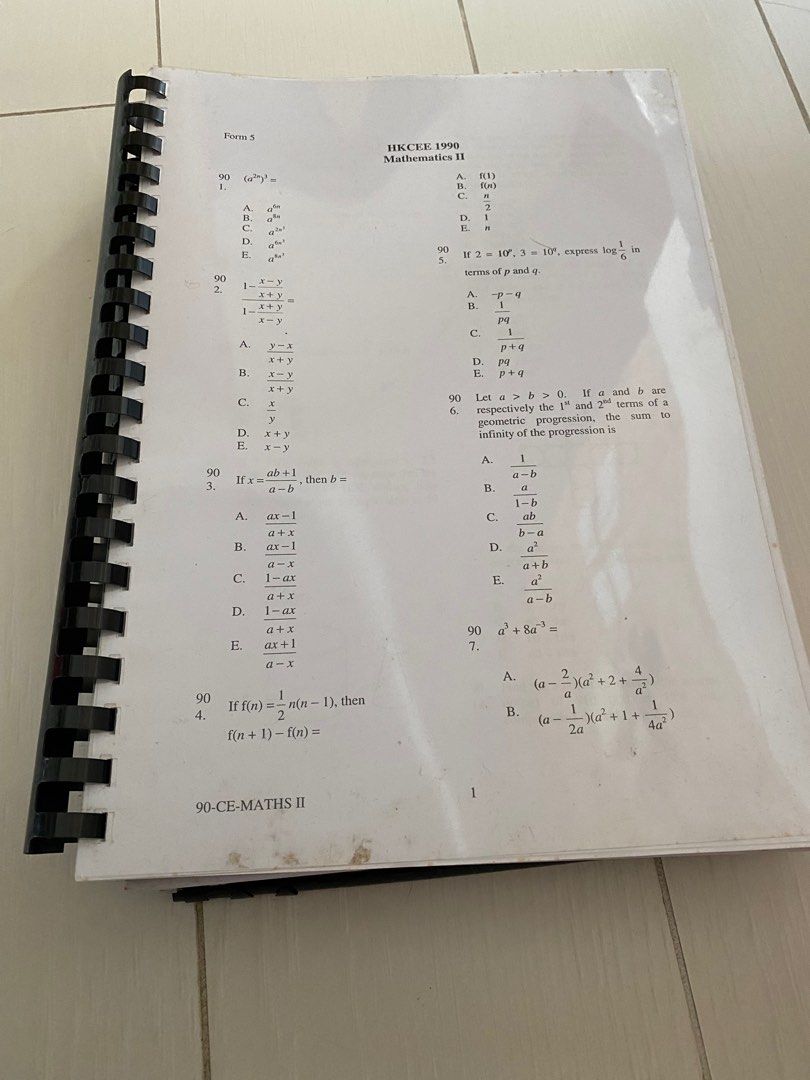 Form 5
HKCEE 1990
Mathematics II
90
1. (a²ⁿ)³ =
A. a⁶ⁿ
B. a⁸ⁿ
C. a^(2n³)
D. a^(6n³)
E. a^(8n³)
90
2. (1 − (x − y)/(x + y)) / (1 − (x + y)/(x − y)) =
A. (y − x)/(x + y)
B. (x − y)/(x + y)
C. x/y
D. x + y
E. x − y
90
3. If x = (ab + 1)/(a − b), then b =
A. (ax − 1)/(a + x)
B. (ax − 1)/(a − x)
C. (1 − ax)/(a + x)
D. (1 − ax)/(a + x)
E. (ax + 1)/(a − x)
90
4. If f(n) = 1/2 n(n − 1), then
f(n + 1) − f(n) =
A. f(1)
B. f(n)
C. n/2
D. 1
E. n
90
5. If 2 = 10ᵖ, 3 = 10^q, express log 1/6 in
terms of p and q.
A. −p − q
B. 1/(pq)
C. 1/(p + q)
D. pq
E. p + q
90
6. Let a > b > 0. If a and b are
respectively the 1ˢᵗ and 2ⁿᵈ terms of a
geometric progression, the sum to
infinity of the progression is
A. 1/(a − b)
B. a/(1 − b)
C. ab/(b − a)
D. a²/(a + b)
E. a²/(a − b)
90
7. a³ + 8a⁻³ =
A. (a − 2/a)(a² + 2 + 4/a²)
B. (a − 1/(2a))(a² + 1 + 1/(4a²))
90-CE-MATHS II
1